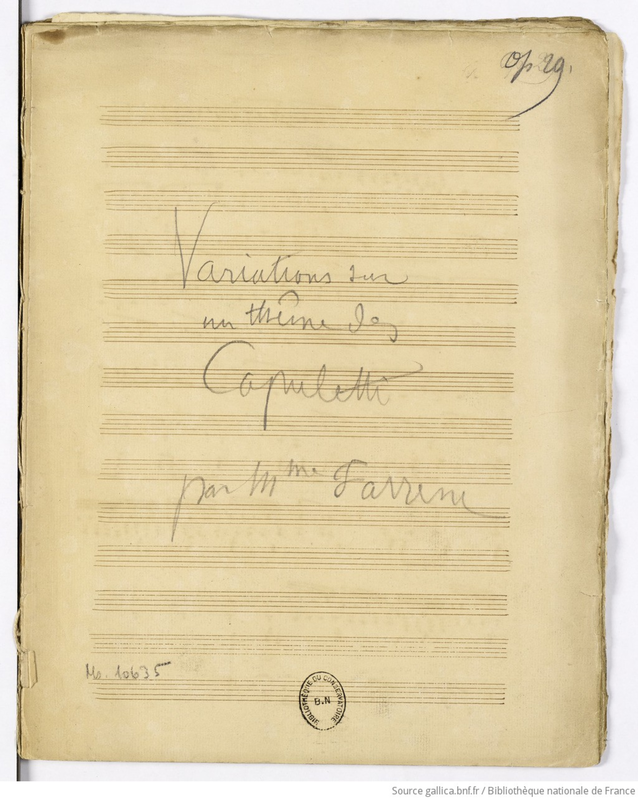 Op 29.
Variations sur
un thême des
Capuletti
par Mme Farrenc
Ms. 10635
BIBLIOTHÈQUE DU CONSERVATOIRE
B.N
Source gallica.bnf.fr / Bibliothèque nationale de France